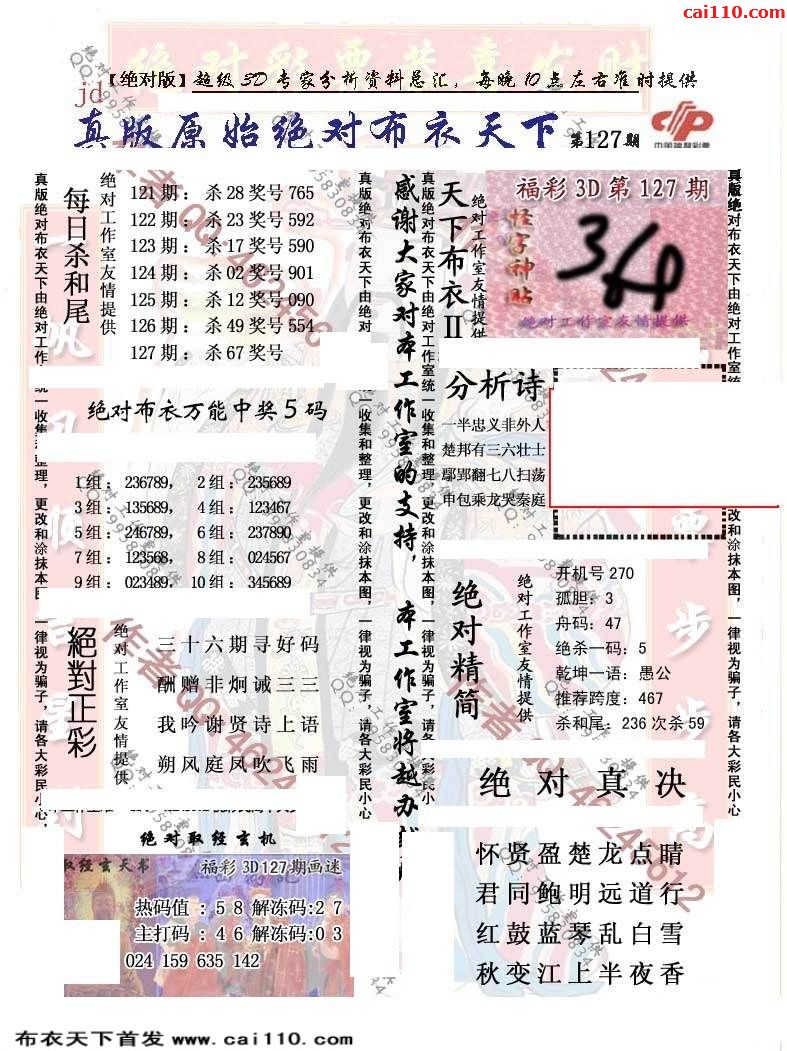 cai110.com
【绝对版】超级3D专家分析资料总汇，每晚10点左右准时提供
jd
真版原始绝对布衣天下 第127期
中国福利彩票
真版绝对布衣天下由绝对工作室统一收集和整理，更改和涂抹本图，一律视为骗子，请各大彩民小心
每日杀和尾
绝对工作室友情提供
121期：杀28奖号765
122期：杀23奖号592
123期：杀17奖号590
124期：杀02奖号901
125期：杀12奖号090
126期：杀49奖号554
127期：杀67奖号
绝对布衣万能中奖5码
1组：236789，2组：235689
3组：135689，4组：123467
5组：246789，6组：237890
7组：123568，8组：024567
9组：023489，10组：345689
絕對正彩
绝对工作室友情提供
三十六期寻好码
酬赠非炯诫三三
我吟谢贤诗上语
朔风庭凤吹飞雨
绝对取经玄机
取经玄天书
福彩3D127期画迷
热码值：58解冻码:27
主打码：46解冻码:03
024 159 635 142
真版绝对布衣天下由绝对
一收集和整理，更改和涂抹本图，一律视为骗子，请各大彩民小心
感谢大家对本工作室的支持，本工作室将越办
真版绝对布衣天下由绝对工作室统一收集和整理，更改和涂抹本图，一律视为骗子，请
彩民小心
天下布衣II
绝对工作室友情提供
福彩3D第127期
怪字神贴
34
绝对工作室友情提供
分析诗
一半忠义非外人
楚邦有三六壮士
鄢郢翻七八扫荡
申包乘龙哭秦庭
绝对精简
绝对工作室友情提供
开机号270
孤胆：3
舟码：47
绝杀一码：5
乾坤一语：愚公
推荐跨度：467
杀和尾：236次杀59
绝对真决
怀贤盈楚龙点睛
君同鲍明远道行
红鼓蓝琴乱白雪
秋变江上半夜香
真版绝对布衣天下由绝对工作室统
改和涂抹本图，一律视为骗子，请各大彩民小心
布衣天下首发 www.cai110.com